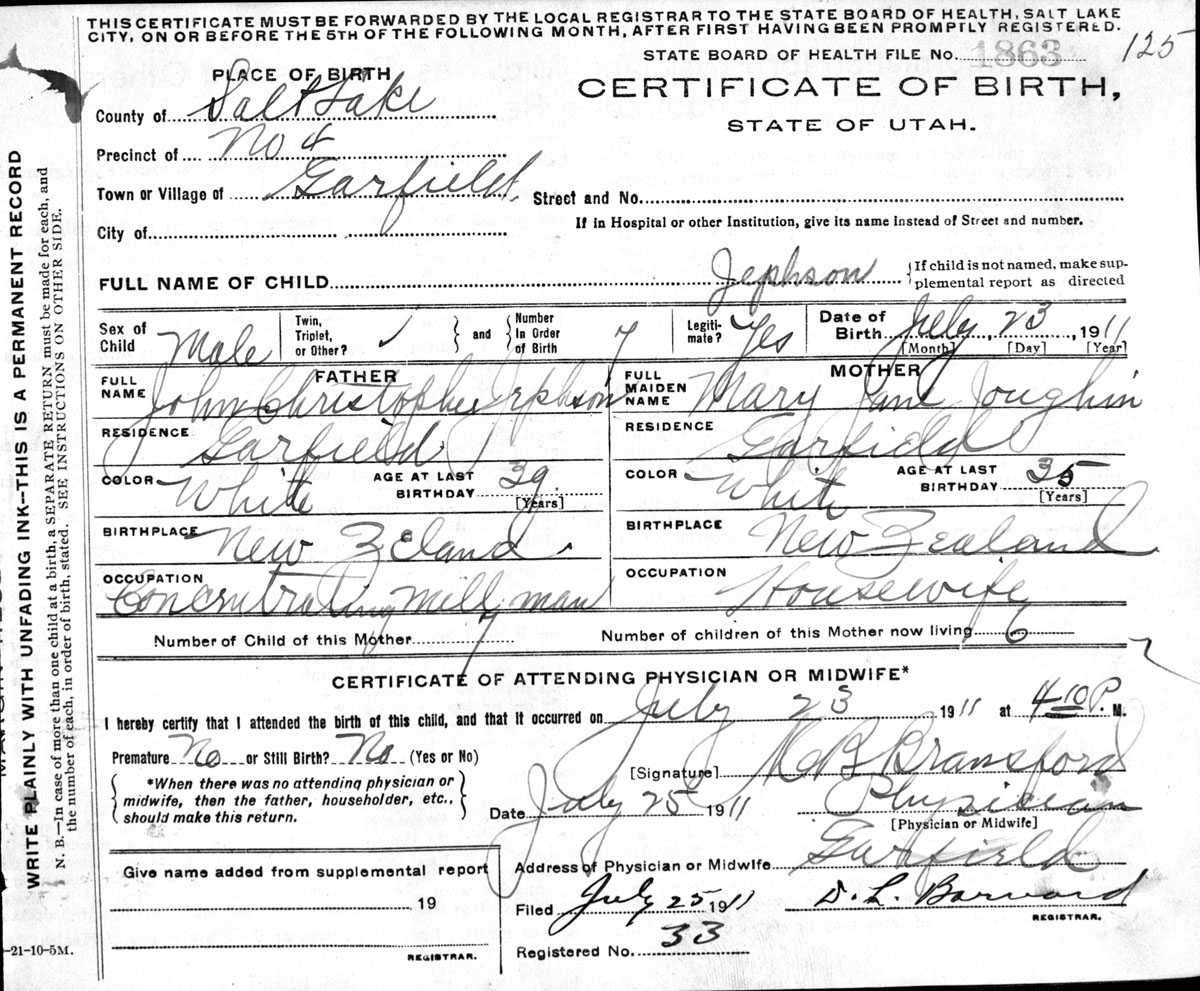 THIS CERTIFICATE MUST BE FORWARDED BY THE LOCAL REGISTRAR TO THE STATE BOARD OF HEALTH, SALT LAKE
CITY, ON OR BEFORE THE 5TH OF THE FOLLOWING MONTH, AFTER FIRST HAVING BEEN PROMPTLY REGISTERED.
125
STATE BOARD OF HEALTH FILE No. 1863
PLACE OF BIRTH
CERTIFICATE OF BIRTH,
STATE OF UTAH.
County of Salt Lake
Precinct of No 4
Town or Village of Garfield
Street and No.
City of
If in Hospital or other Institution, give its name instead of Street and number.
FULL NAME OF CHILD Jephson
If child is not named, make sup-
plemental report as directed
Sex of Child Male
Twin, Triplet, or Other? ✓
and
Number In Order of Birth 7
Legiti-mate? Yes
Date of Birth July 23, 1911
[Month] [Day] [Year]
FATHER
FULL NAME John Christopher Jephson
MOTHER
FULL MAIDEN NAME Mary Jane Joughin
RESIDENCE Garfield
RESIDENCE Garfield
COLOR White AGE AT LAST BIRTHDAY 39 [Years]
COLOR White AGE AT LAST BIRTHDAY 35 [Years]
BIRTHPLACE New Zeland
BIRTHPLACE New Zealand
OCCUPATION Concentrating Mill man
OCCUPATION Housewife
Number of Child of this Mother 7
Number of children of this Mother now living 6
7
CERTIFICATE OF ATTENDING PHYSICIAN OR MIDWIFE*
I hereby certify that I attended the birth of this child, and that it occurred on July 23 1911 at 4 10 P. M.
Premature No or Still Birth? No (Yes or No)
*When there was no attending physician or
midwife, then the father, householder, etc.,
should make this return.
[Signature] B Bransford
Date July 25 1911 Physician
[Physician or Midwife]
Address of Physician or Midwife Garfield
Give name added from supplemental report
19
REGISTRAR.
Filed July 25 1911 D. L. Barnard
REGISTRAR.
Registered No. 33
-21-10-5M.
WRITE PLAINLY WITH UNFADING INK--THIS IS A PERMANENT RECORD
N. B.—In case of more than one child at a birth, a SEPARATE RETURN must be made for each, and
the number of each, in order of birth, stated. SEE INSTRUCTIONS ON OTHER SIDE.